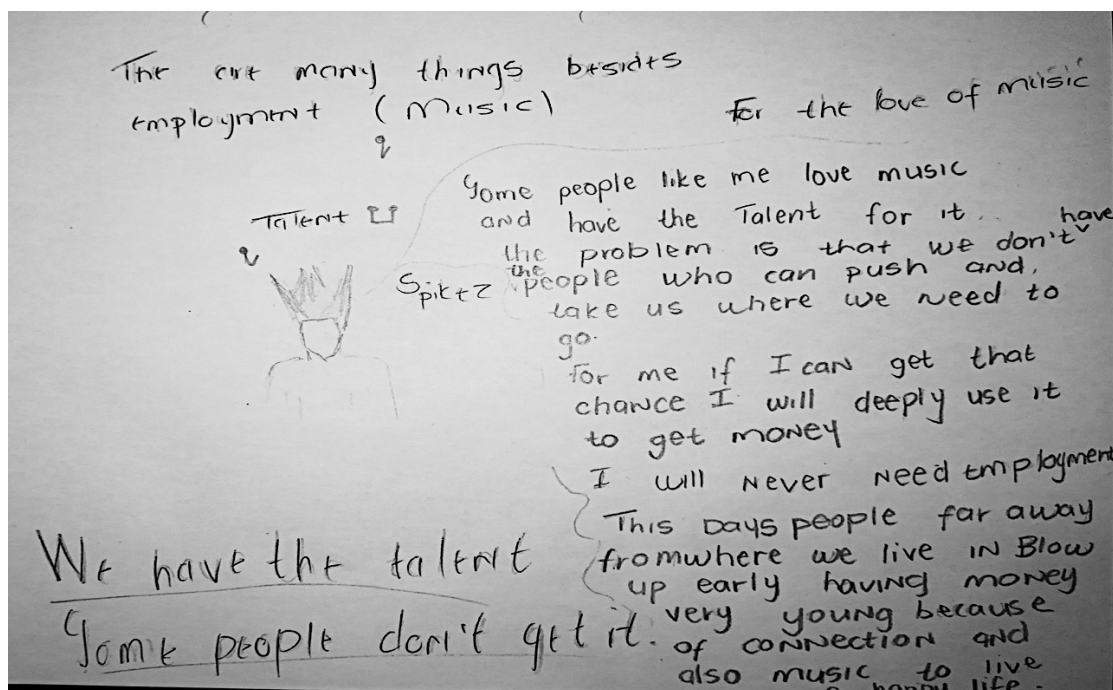 The are many things besides
employment (Music)
For the love of music
Talent
Spikez
Some people like me love music
and have the Talent for it..
the problem is that we don't have
the people who can push and,
take us where we need to
go.
For me if I can get that
chance I will deeply use it
to get money
I will Never Need Employment
This Days people far away
fromwhere we live in Blow
up early having money
very young because
of connection and
also music to live
a happy life.
We have the talent
Some people don't get it.